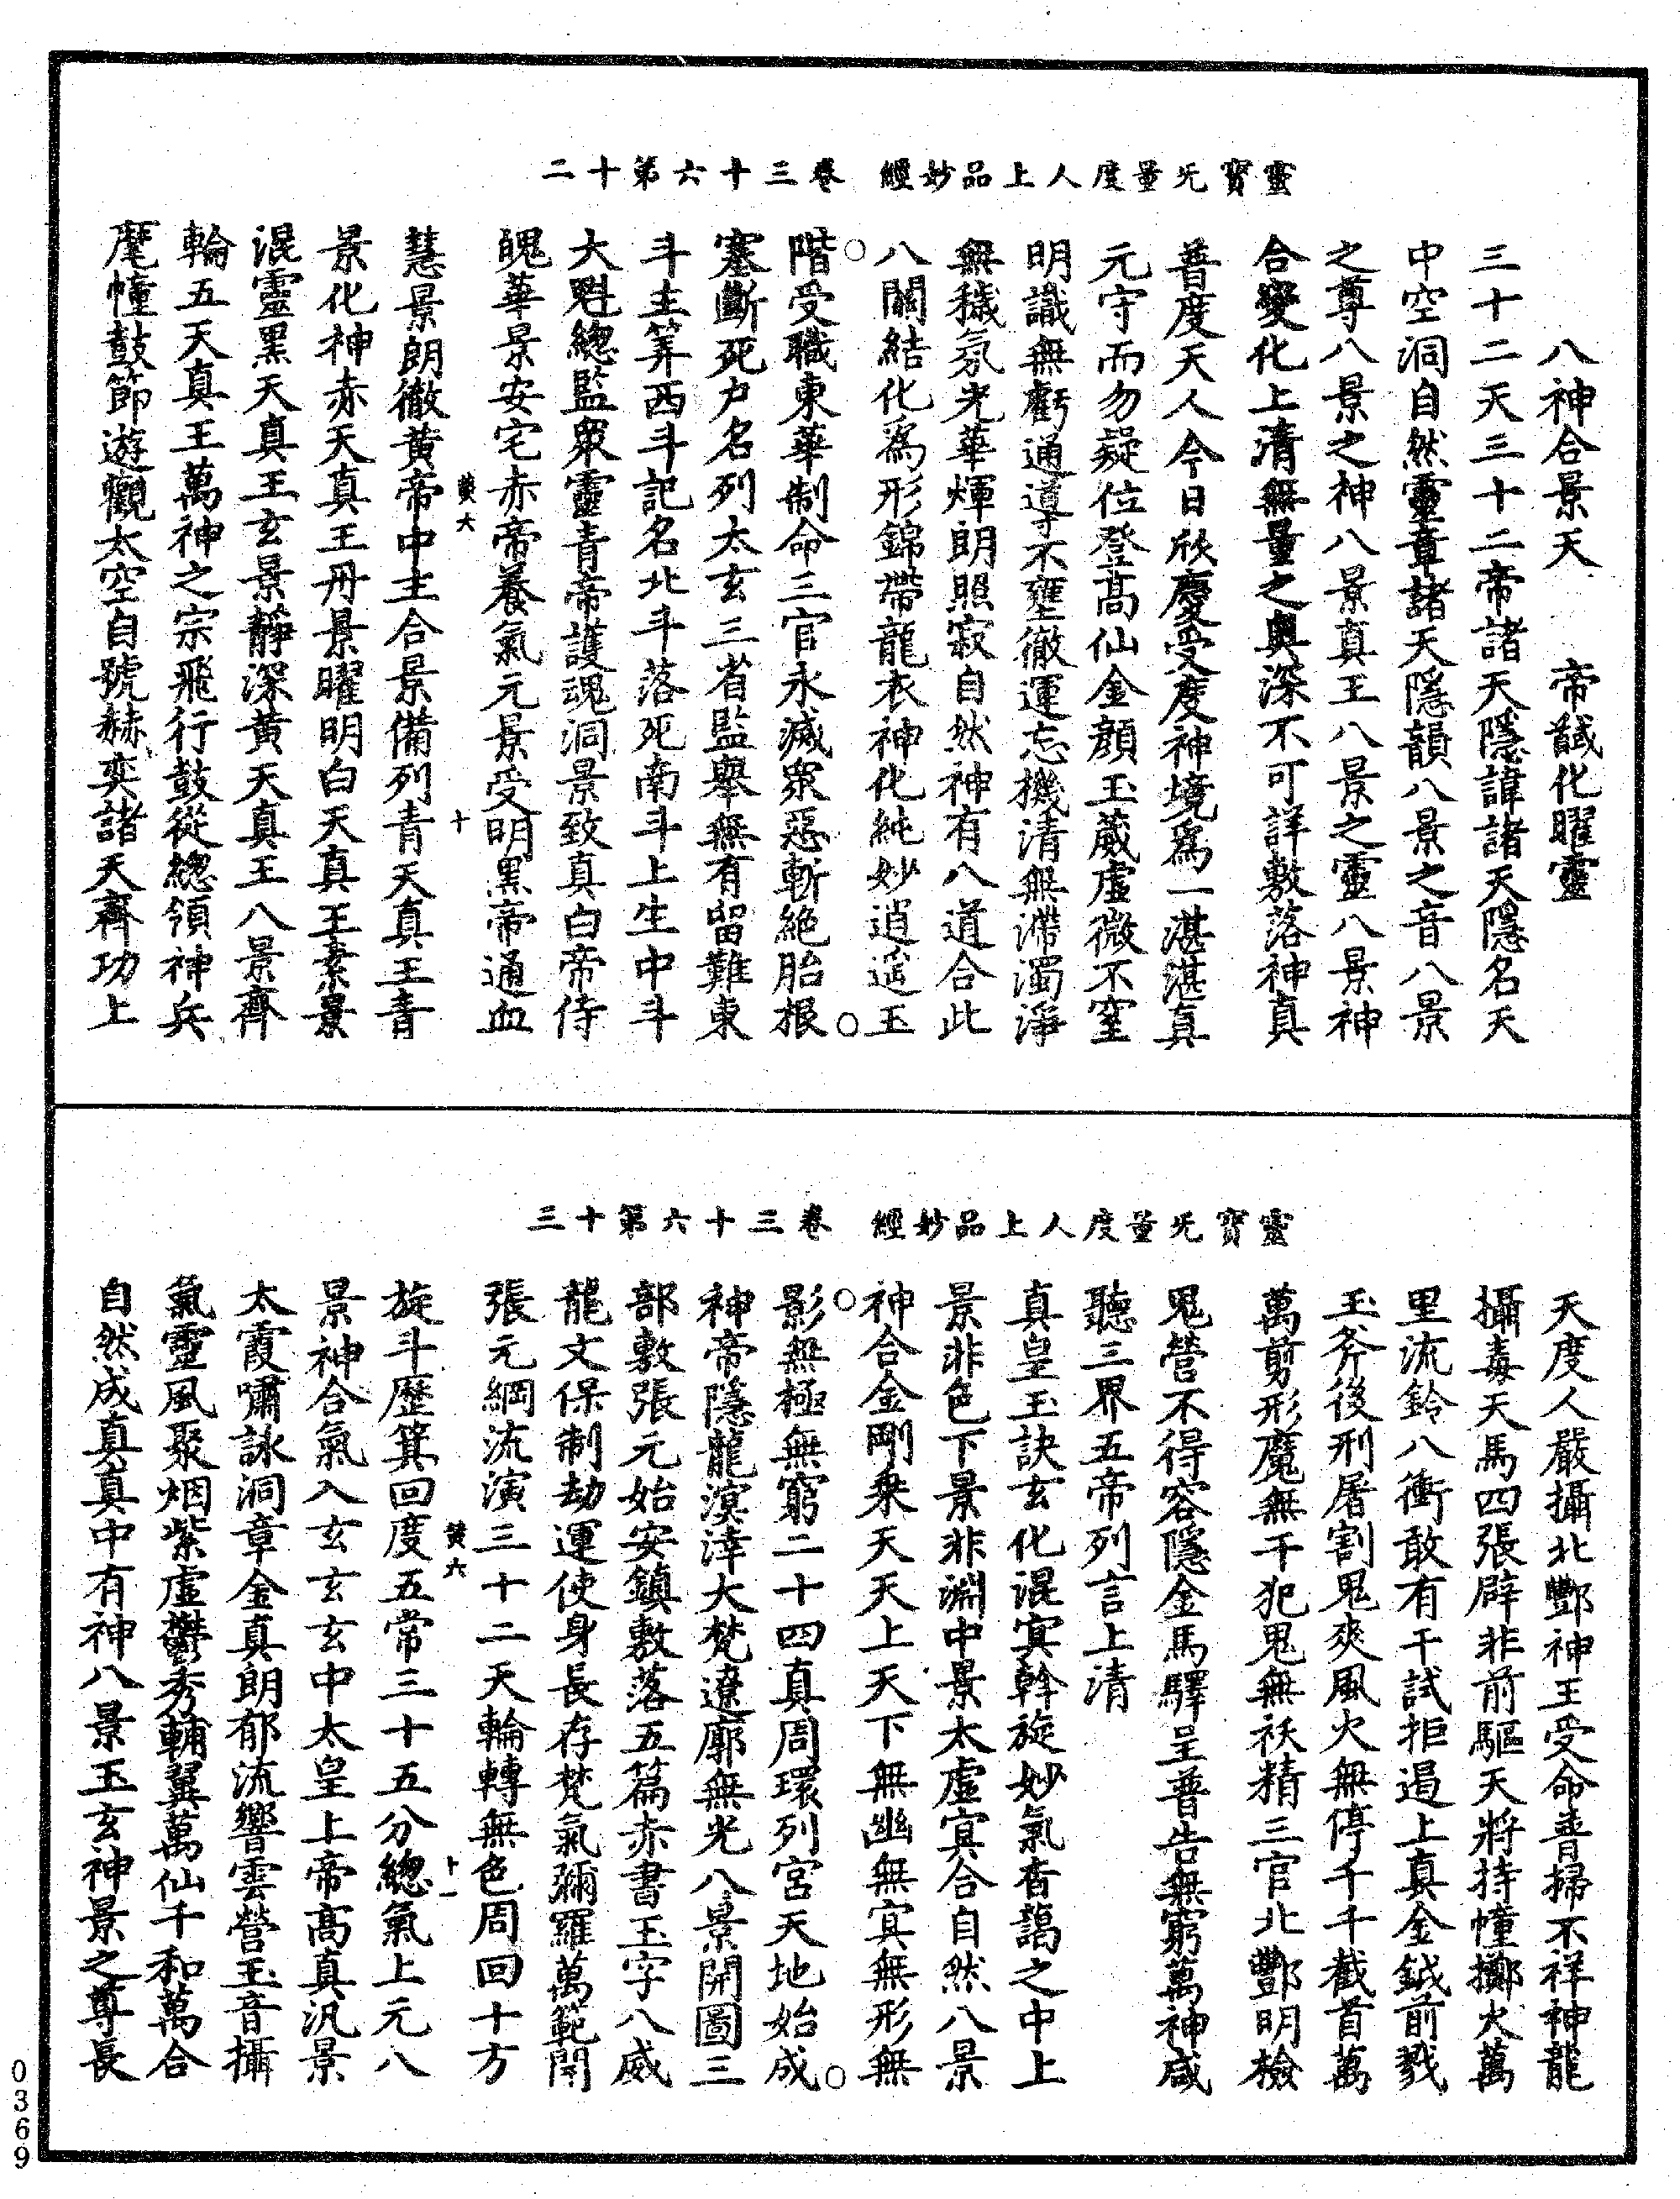 靈寶无量度人上品妙經　卷三十六第十二
八神合景天　帝馘化曜靈
三十二天三十二帝諸天隱諱諸天隱名天
中空洞自然靈章諸天隱韻八景之音八景
之尊八景之神八景真王八景之靈八景神
合變化上清無量之奧深不可詳敷落神真
普度天人今日欣慶受度神境為一湛湛真
元守而勿疑位登高仙金顏玉葳虛微不窒
明識無虧通導不壅徹運忘機清無滯濁淨
無穢氛光華煇朗照寂自然神有八道合此
八關結化為形錦帶龍衣神化純妙逍遙玉
階受職東華制命三官永滅眾惡斬絕胎根
塞斷死户名列太玄三省監舉無有留難東
斗主筭西斗記名北斗落死南斗上生中斗
大魁總監眾靈青帝護魂洞景致真白帝侍
魄華景安宅赤帝養氣元景受明黑帝通血
黃六　十
慧景朗徹黃帝中主合景備列青天真王青
景化神赤天真王丹景曜明白天真王素景
混靈黑天真王玄景靜深黃天真王八景齊
輪五天真王萬神之宗飛行鼓從總領神兵
麾幢鼓節遊觀太空自號赫奕諸天齊功上
靈寶无量度人上品妙經　卷三十六第十三
天度人嚴攝北酆神王受命普掃不祥神龍
攝毒天馬四張辟非前驅天將持幢擲火萬
里流鈴八衝敢有干試拒遏上真金鉞前戮
玉斧後刑屠割鬼爽風火無停千千截首萬
萬剪形魔無干犯鬼無袄精三官北酆明檢
鬼營不得容隱金馬驛呈普告無窮萬神咸
聽三界五帝列言上清
真皇玉訣玄化混冥斡旋妙氣杳藹之中上
景非色下景非淵中景太虛冥合自然八景
神合金剛乘天天上天下無幽無冥無形無
影無極無窮二十四真周環列宮天地始成
神帝隱龍溟涬大梵遼廓無光八景開圖三
部敷張元始安鎮敷落五篇赤書玉字八威
龍文保制劫運使身長存梵氣彌羅萬範開
張元綱流演三十二天輪轉無色周回十方
黃六　十一
旋斗歷箕回度五常三十五分總氣上元八
景神合氣入玄玄玄中太皇上帝高真汎景
太霞嘯詠洞章金真朗郁流響雲營玉音攝
氣靈風聚烟紫虛鬱秀輔翼萬仙千和萬合
自然成真真中有神八景玉玄神景之尊長
0369